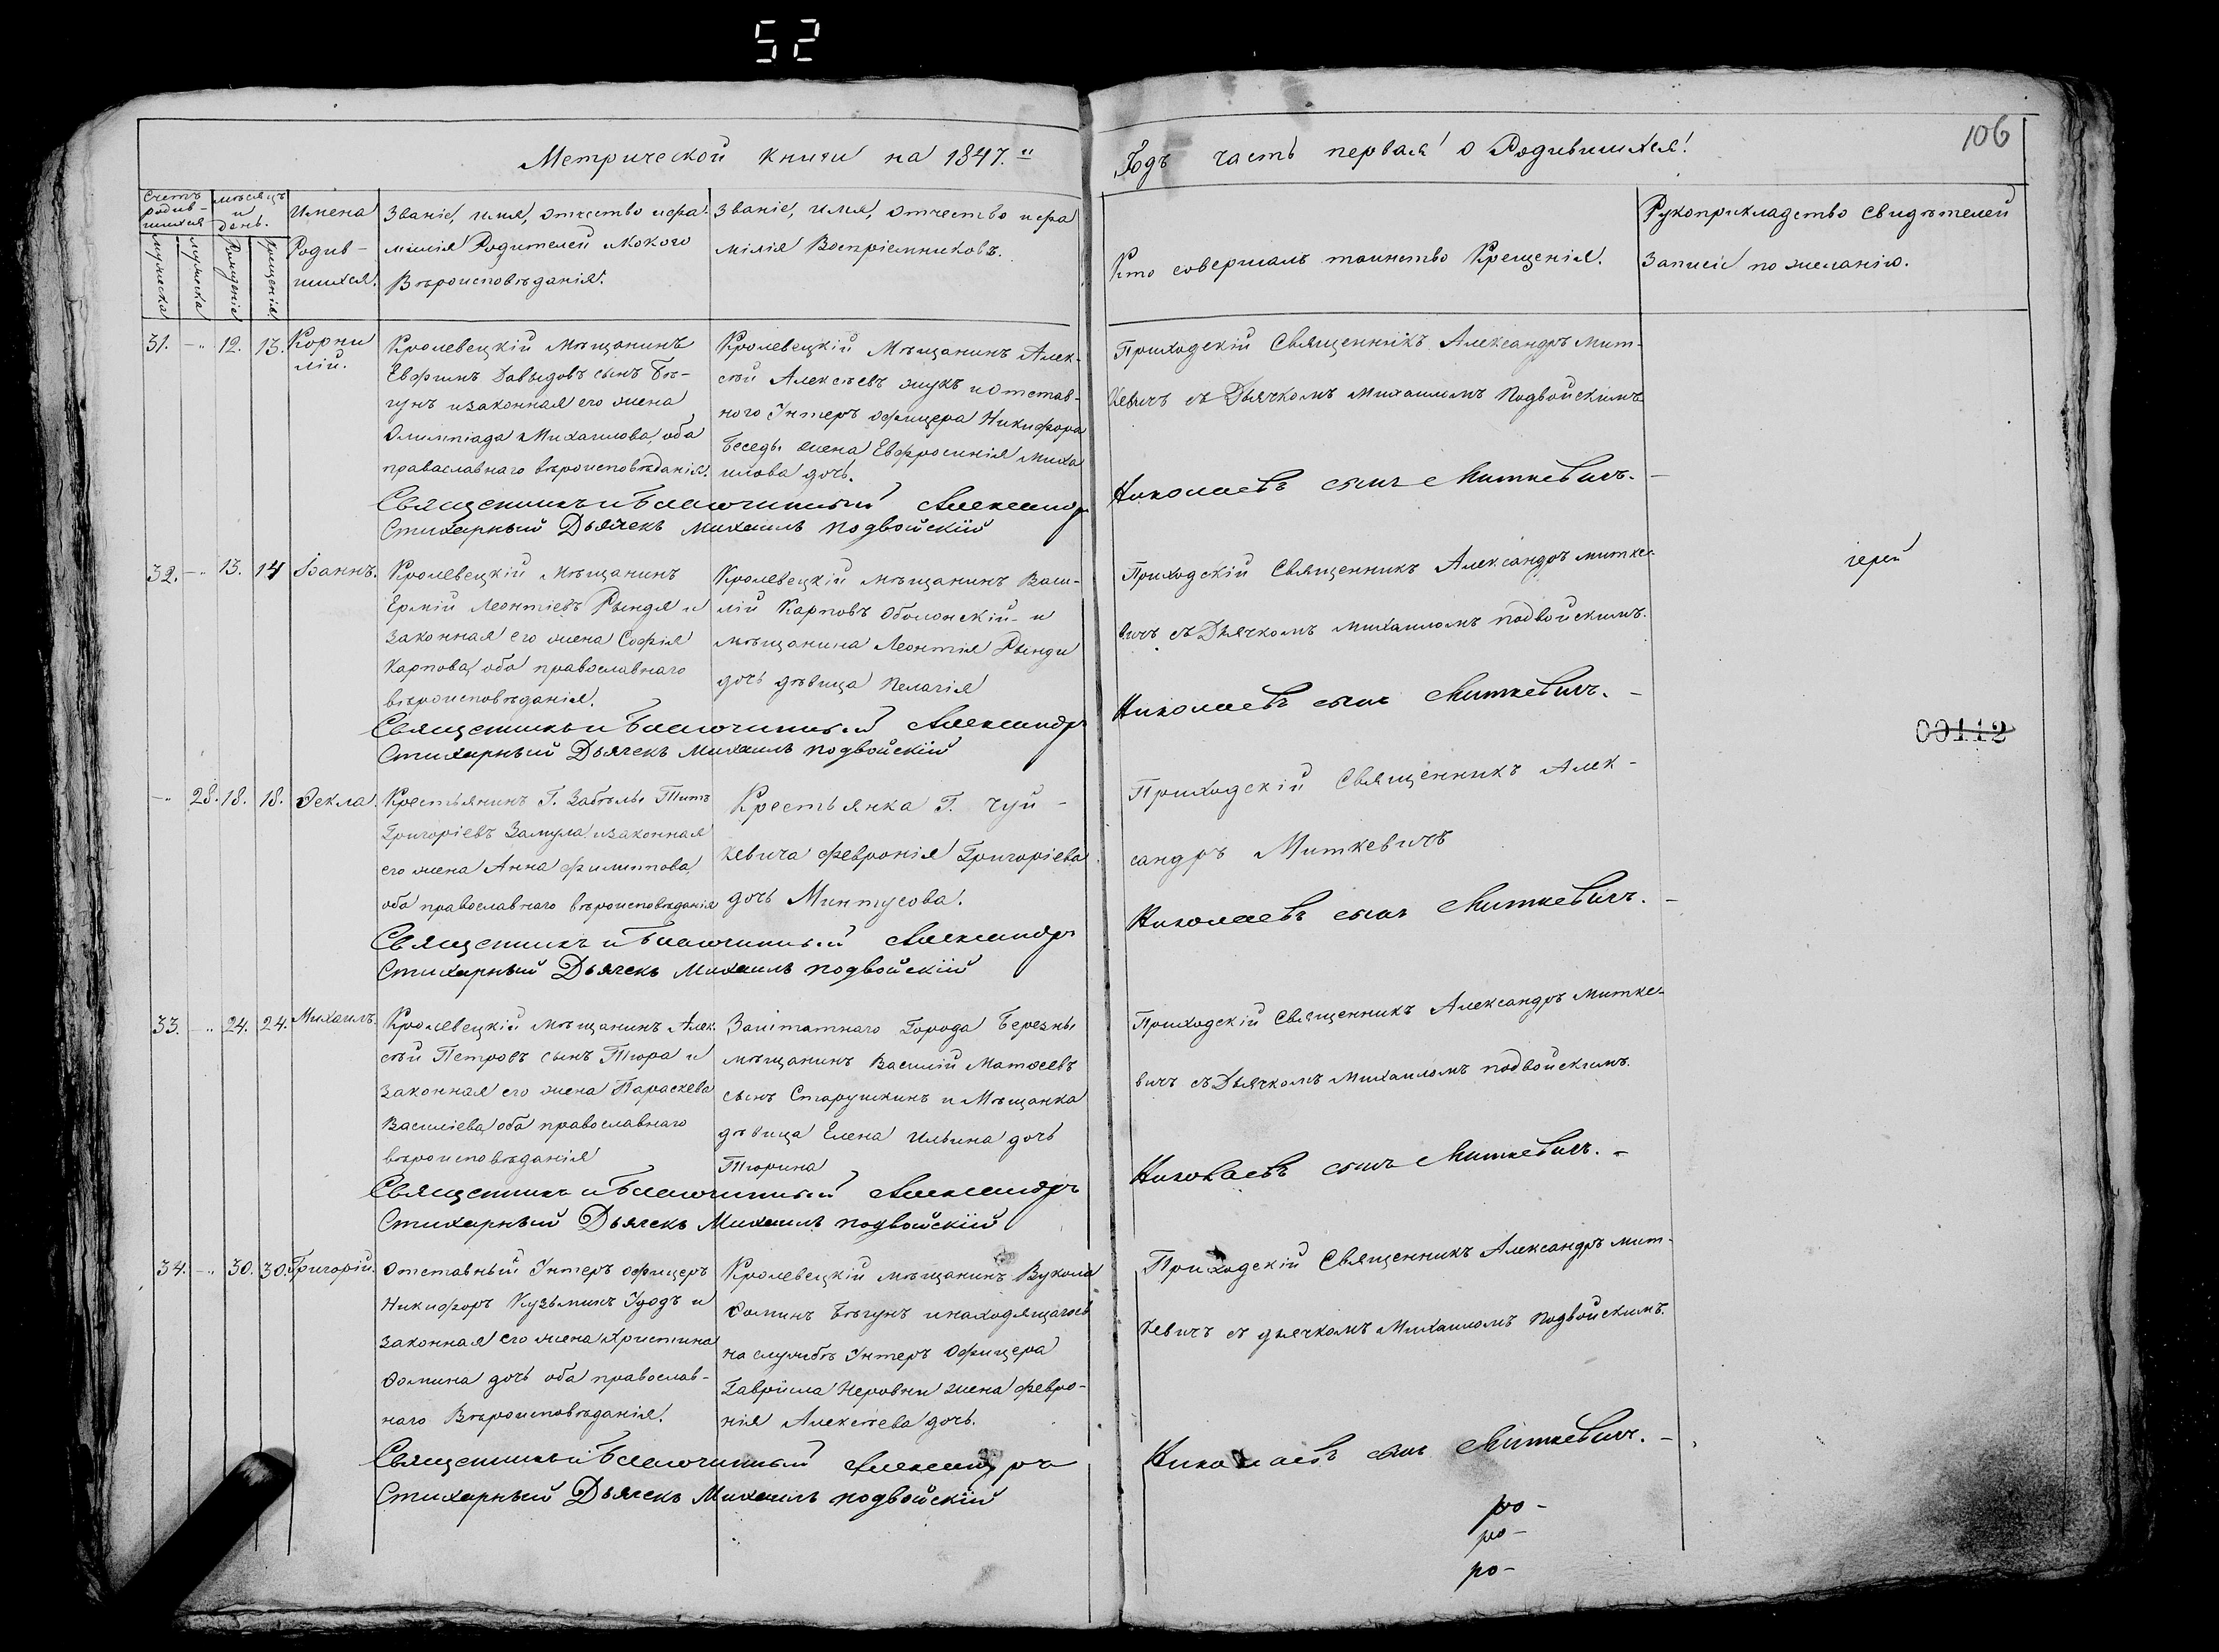 52
Метрической книги на 1847.й
Годъ часть первая о Родившихся.
106
Счетъ родив-шихся
мѣсяцъ и день.
Имена
Родив-
шихся.
Званіе, имя, отчество и фа-
милія Родителей и какого
Вѣроисповѣданія.
Званіе, имя, отчество и фа
милія Воспріемниковъ.
Кто совершалъ таинство Крещенія.
Рукоприкладство свидѣтелей
Записи по желанію.
Рожденія
Крещенія
31. -„ 12. 13. Корни
лій.
Кролевецкій мѣщанинъ
Евфимъ Давыдовъ сынъ Бѣ-
гунъ и законная его жена
Олимпіада Михаилова, оба
православнаго вѣроисповѣданія.
Кролевецкій Мѣщанинъ Алек-
сѣй Алексѣевъ Жукъ и Отстав-
ного Унтеръ офицера Никифора
Беседы жена Евфросинія Миха
илова дочь.
Приходскій Священникъ Александръ Мит-
кевичъ съ Дьячкомъ Михаиломъ Подвойскимъ
Священникъ и Благочинный Александръ
Николаевъ сынъ Миткевичъ. -
Стихарный Дьячекъ Михаилъ Подвойскій
32. -„ 13. 14 Іоаннъ.
Кролевецкій мѣщанинъ
Ермій Леонтіевъ Рындя и
законная его жена Софія
Карпова, оба православнаго
вѣроисповѣданія.
Кролевецкій мѣщанинъ Васи-
лій Карповъ Оболонскій и
мѣщанина Леонтія Рынди
дочь дѣвица Пелагія
Приходскій Священникъ Александръ Митке-
вичъ съ Дьячкомъ Михаиломъ Подвойскимъ.
іерей
Священникъ и Благочинный Александръ
Николаевъ сынъ Миткевичъ. -
Стихарный Дьячекъ Михаилъ Подвойскій
00112
-„ 28. 18. 18. Ѳекла.
Крестьянинъ Г. Забѣлы Титъ
Григоріевъ Замула и законная
его жена Анна Филиппова,
оба православнаго вѣроисповѣданія
Крестьянка Г. Чуй-
кевича Февронія Григоріева
дочь Минтусова.
Приходскій Священникъ Алек-
сандръ Миткевичъ
Священникъ и Благочинный Александръ
Николаевъ сынъ Миткевичъ. -
Стихарный Дьячекъ Михаилъ Подвойскій
33. -„ 24. 24. Михаилъ.
Кролевецкій мѣщанинъ Алек-
сѣй Петровъ сынъ Тюра и
законная его жена Параскева
Василіева, оба православнаго
вѣроисповѣданія
Заштатнаго Города Березны
мѣщанинъ Василій Матѳеевъ
сынъ Старушкинъ и Мѣщанка
дѣвица Елена Ильина дочь
Тюрина
Приходскій Священникъ Александръ Митке-
вичъ съ Дьячкомъ Михаиломъ Подвойскимъ.
Священникъ и Благочинный Александръ
Николаевъ сынъ Миткевичъ. -
Стихарный Дьячекъ Михаилъ Подвойскій
34. -„ 30. 30. Григорій.
Отставный Унтеръ офицеръ
Никифоръ Кузьминъ Удодъ и
законная его жена Христина
Ѳомина дочь оба православ-
наго Вѣроисповѣданія.
Кролевецкій мѣщанинъ Вукола
Ѳоминъ Бѣгунъ и находящагось
на службѣ Унтеръ Офицера
Гавріила Неровни жена Февро-
нія Алексѣева дочь.
Приходскій Священникъ Александръ Мит-
кевичъ съ дьячкомъ Михаиломъ Подвойскимъ.
Священникъ и Благочинный Александръ
Николаевъ сынъ Миткевичъ. -
Стихарный Дьячекъ Михаилъ Подвойскій
ро-
ро-
ро-